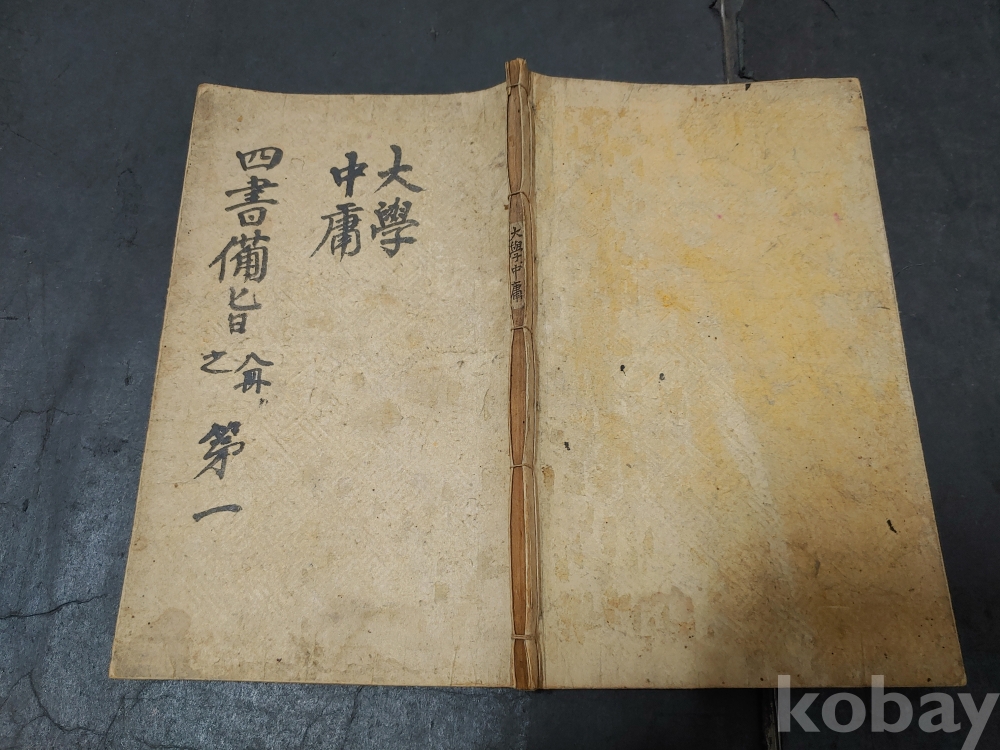 大學
中庸
四書備旨 八冊之 第一
大學中庸
kobay